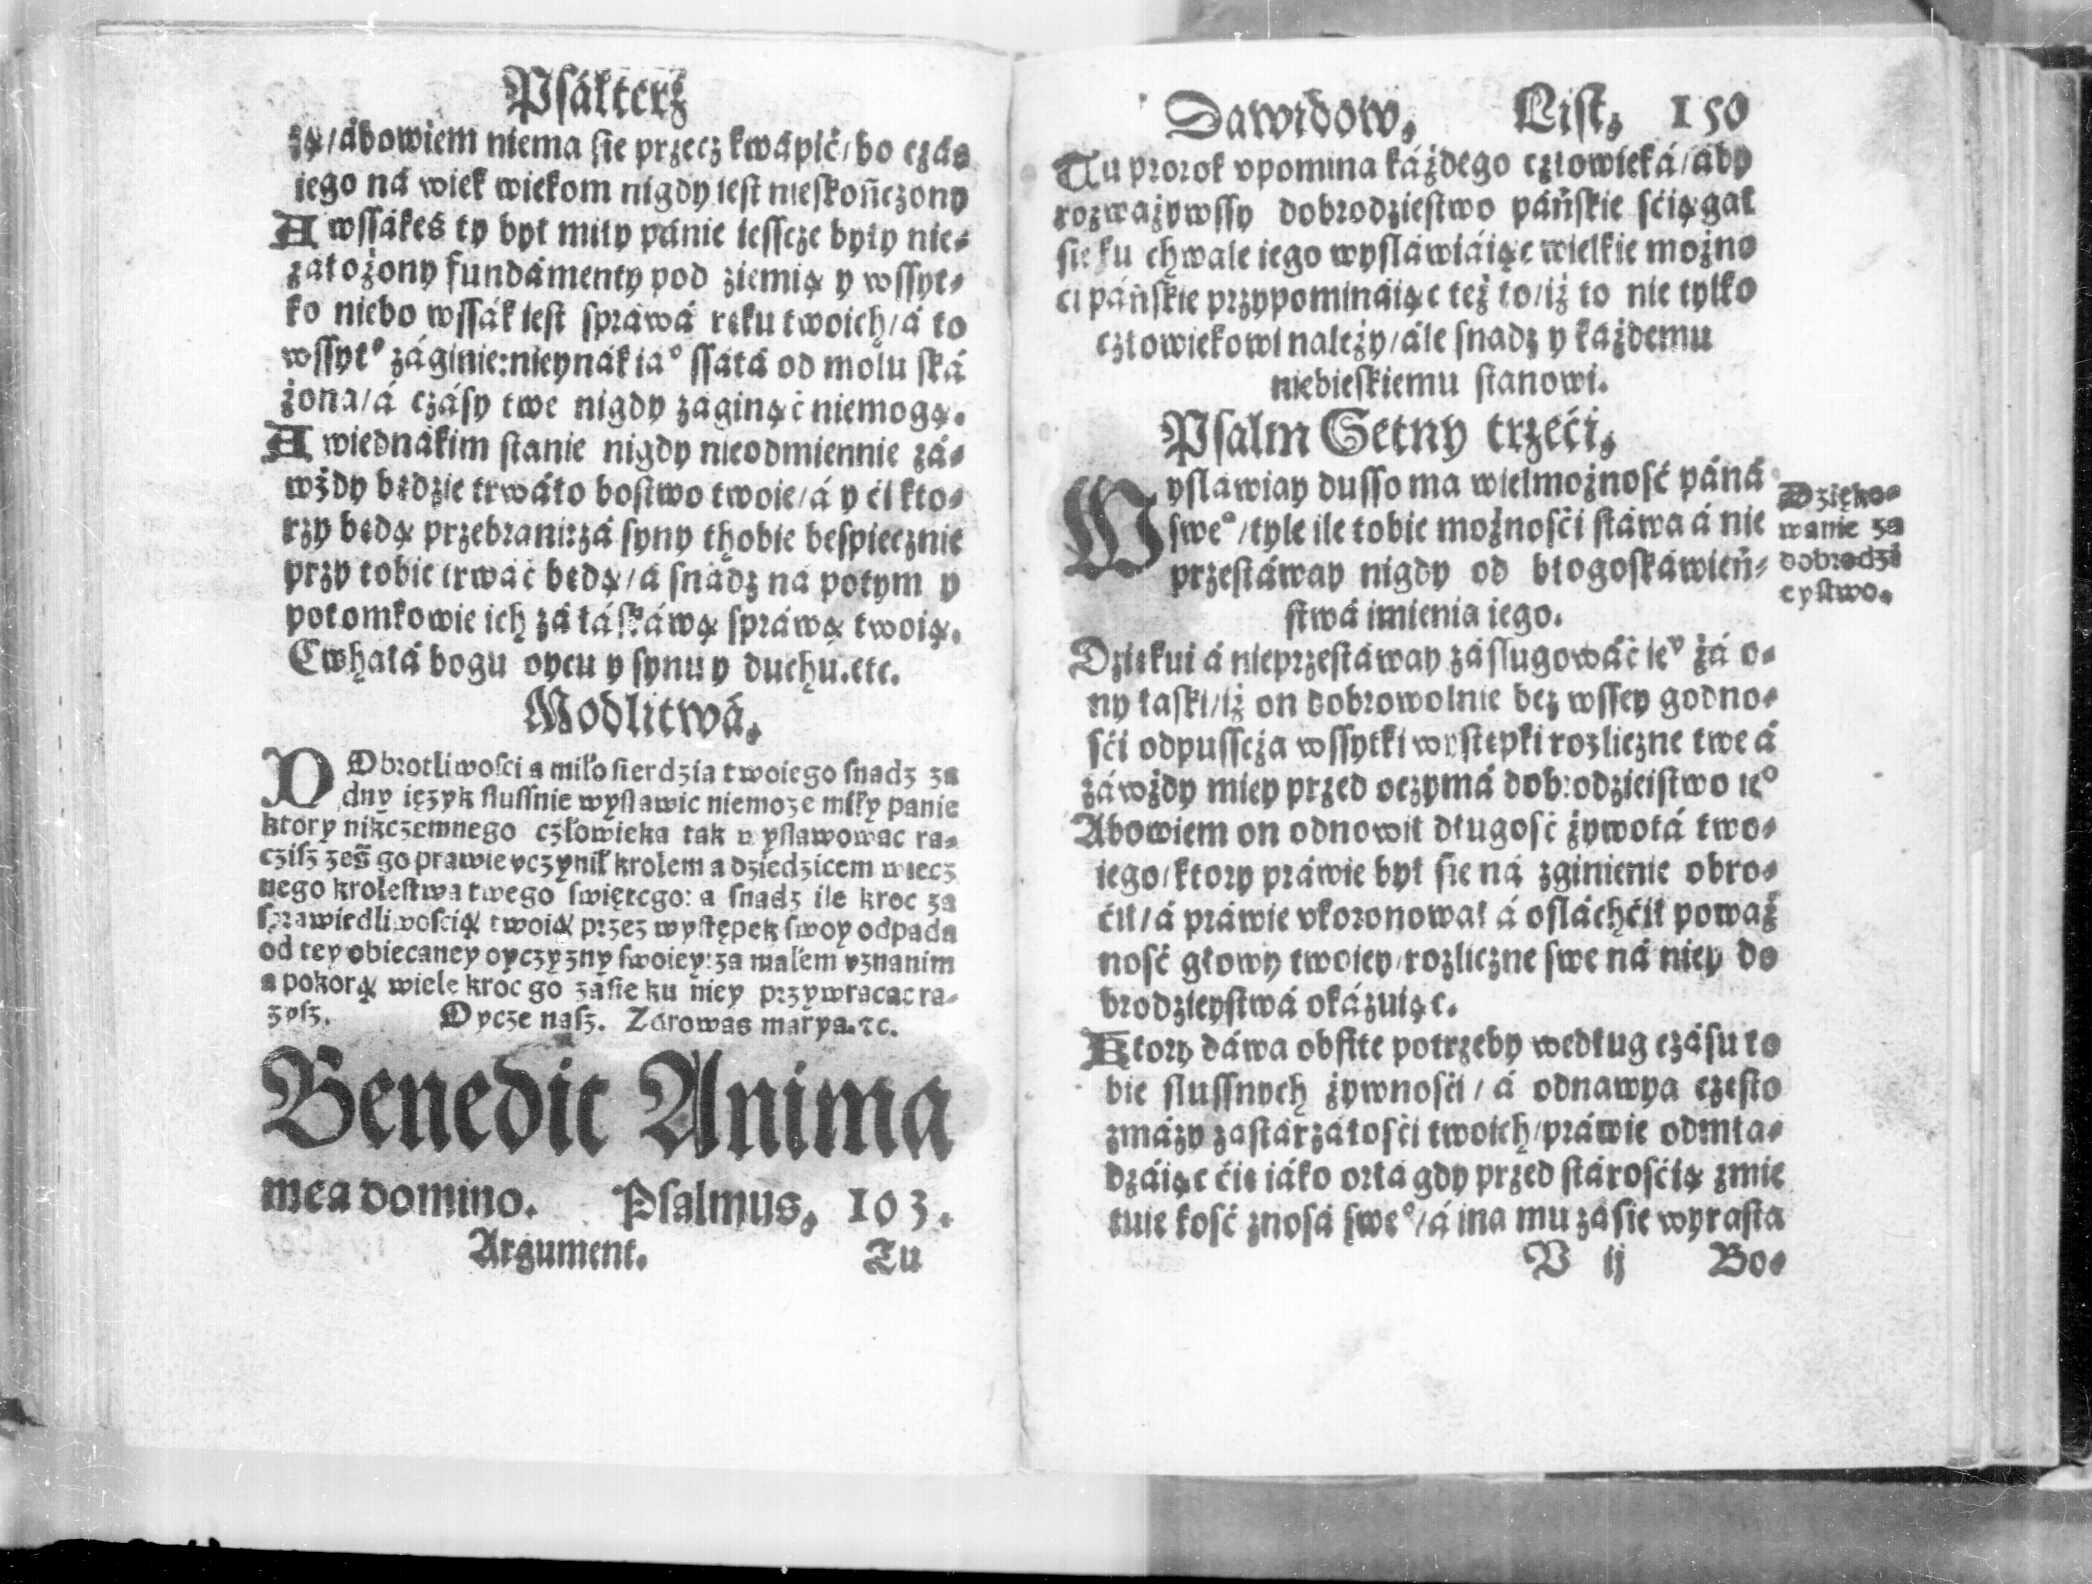 Psáłterz
żą/ábowiem niema sie przecz kwápić/bo czás
iego ná wiek wiekom nigdy iest nieskończony
A wssákeś ty był miły pánie iesscze były nie-
záłożony fundámenty pod ziemią y wssyt-
ko niebo wssák iest spráwá ręku twoich/á to
wssytº záginie:nieynák iaº ssátá od molu ská
żona/á czásy twe nigdy záginąć niemogą.
A wiednákim stanie nigdy nieodmiennie zá-
wżdy będzie trwáło bostwo twoie/á y ći kto-
rzy będą przebrani:zá syny thobie bespiecznie
przy tobie trwáć będą/á snádz ná potym y
potomkowie ich zá łáskáwą spráwą twoią.
Cwhałá bogu oycu y synu y duchu.etc.
Modlitwá.
DObrotliwosci a miłosierdzia twoiego snadz za
dny ięzyk slussnie wyslawic niemoze miły panie
ktory nikczemnego człowieka tak wyslawowac ra-
czisz ześ go prawie vczynił krolem a dziedzicem wiecz
nego krolestwa twego swiętego: a snadz ile kroc za
sprawiedliwoscią twoią przez występek swoy odpada
od tey obiecaney oyczyzny swoiey:za małem vznanim
a pokorą wiele kroc go zasie ku niey przywracac ra-
zysz. Oycze nasz. Zdrowas marya.⁊c.
Benedic Anima
mea domino. Psalmus, 103.
Argument. Tu
Dawidow, List, 150
Tu prorok vpomina káżdego człowieká/áby
rozważywssy dobrodziestwo páńskie śćiągał
sie ku chwale iego wysláwiáiąc wielkie możno
ci páńskie przypomináiąc też to/iż to nie tylko
człowiekowi należy/ále snadz y każdemu
niebieskiemu stanowi.
Psalm Setny trzeći,
Wyslawiay dusso ma wielmożność páná
sweº/tyle ile tobie możnośći stáwa á nie
przestáway nigdy od błogosłáwień-
stwá imienia iego.
Dziękui á nieprzestáway zásługowáć ieº zá o-
ny łaski/iż on dobrowolnie bez wssey godno-
śći odpusscza wssytki występki rozliczne twe á
záwżdy miey przed oczymá dobrodzieistwo ieº
Abowiem on odnowił długość żywotá two-
iego/ktory práwie był sie ná zginienie obro-
ćił/á práwie vkoronował á osláchćił poważ
ność głowy twoiey/rozliczne swe ná niey do
brodzieystwá okázuiąc.
Ktory dáwa obfite potrzeby według czásu to
bie slussnych żywnośći/á odnawya często
zmázy zastárzáłośći twoich/práwie odmła-
dzáiąc ćię iáko orłá gdy przed stárośćią zmie
tuie kość znosá sweº/á ina mu zásie wyrasta
V ij Bo-
Dzięko-
wanie za
dobrodzi
eystwo.